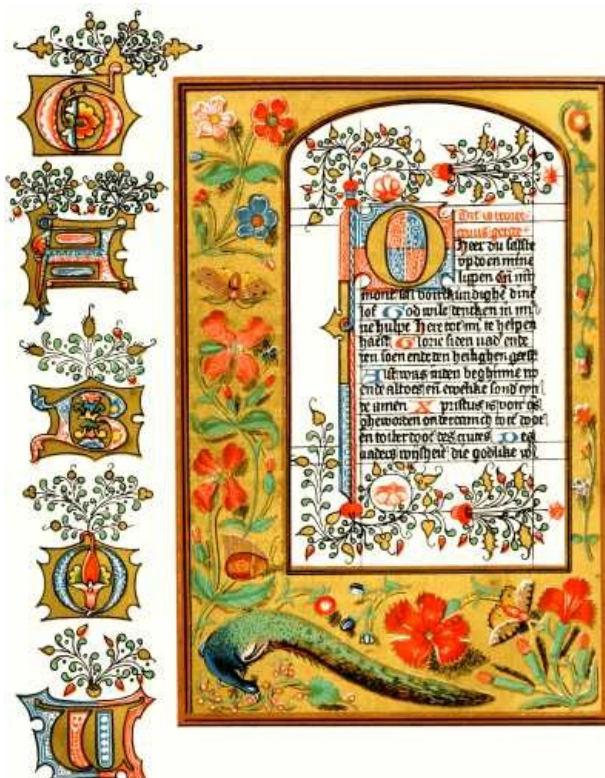 Dit is
cruus
Heer du salste
opdoen mine
lippen En min
mont sal voortkundighe dine
lof God wile dencken in mi
ne hulpe Here tot mi te helpen
haest Glorie si den vad ende
den soen ende den heilighen geest
Alst was inden beghinne
ende altoes en ewelike sond eyn
de amen Xpristus is voir os
gheworden onderdanich tot te doot
en totter doot des cruces Des
vaders wijsheit die godlike